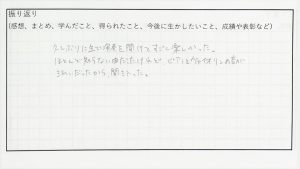 振り返り
(感想、まとめ、学んだこと、得られたこと、今後に生かしたいこと、成績や表彰など)
久しぶりに生で演奏を聞けて、すごく楽しかった。
ほとんど知らない曲だったけれど、ピアノとヴァイオリンの音が
きれいだったから、聞き入った。